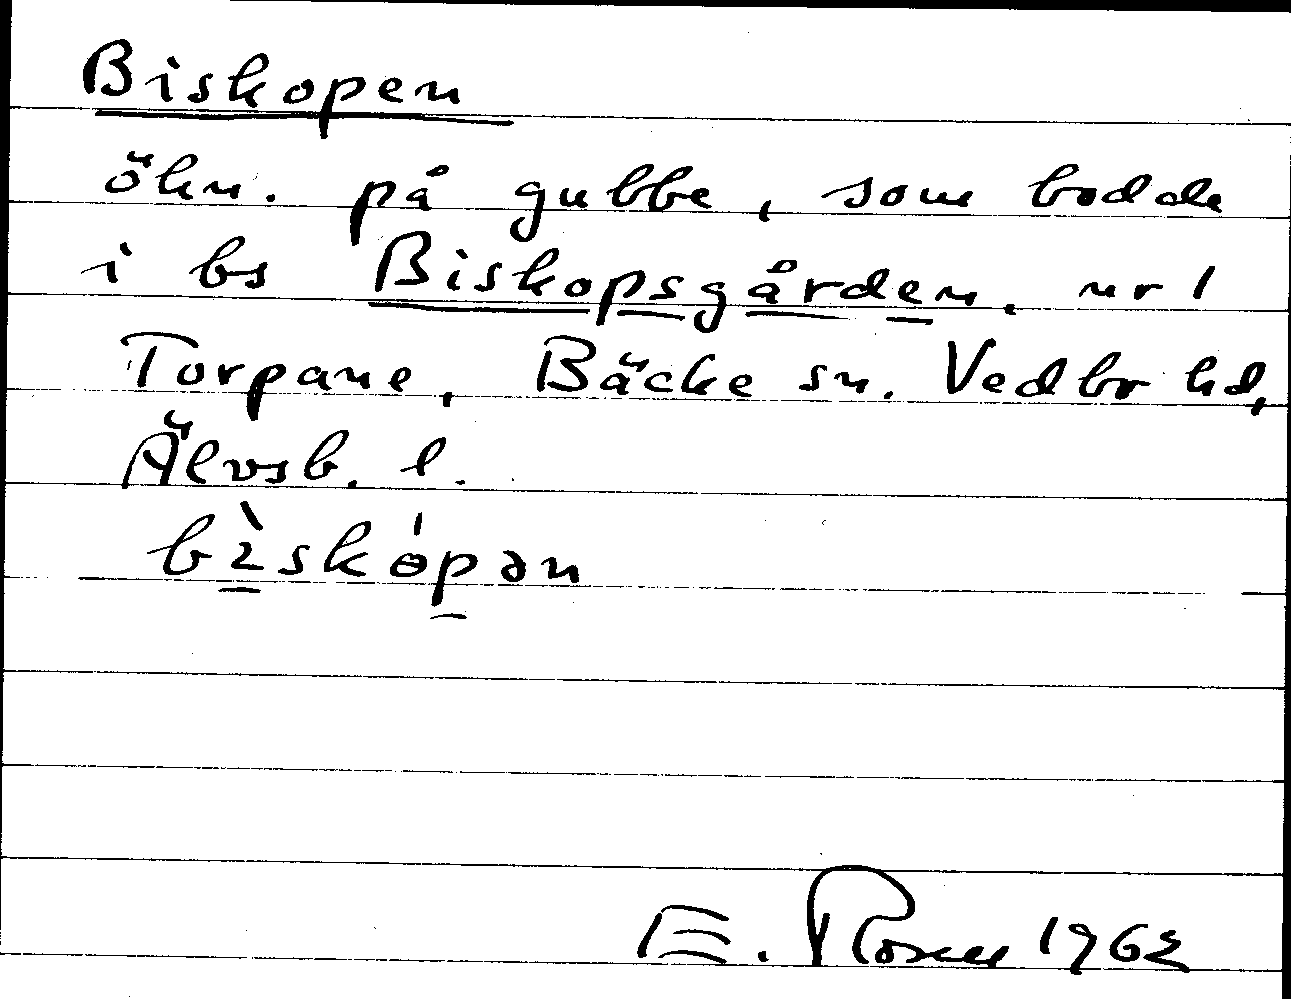 Biskopen
ökn. på gubbe, som bodde
i bs Biskopsgården, nr 1
Torpane, Bäcke sn. Vedbo hd,
Älvsb. l.
bìskópən
E. Rosen 1962